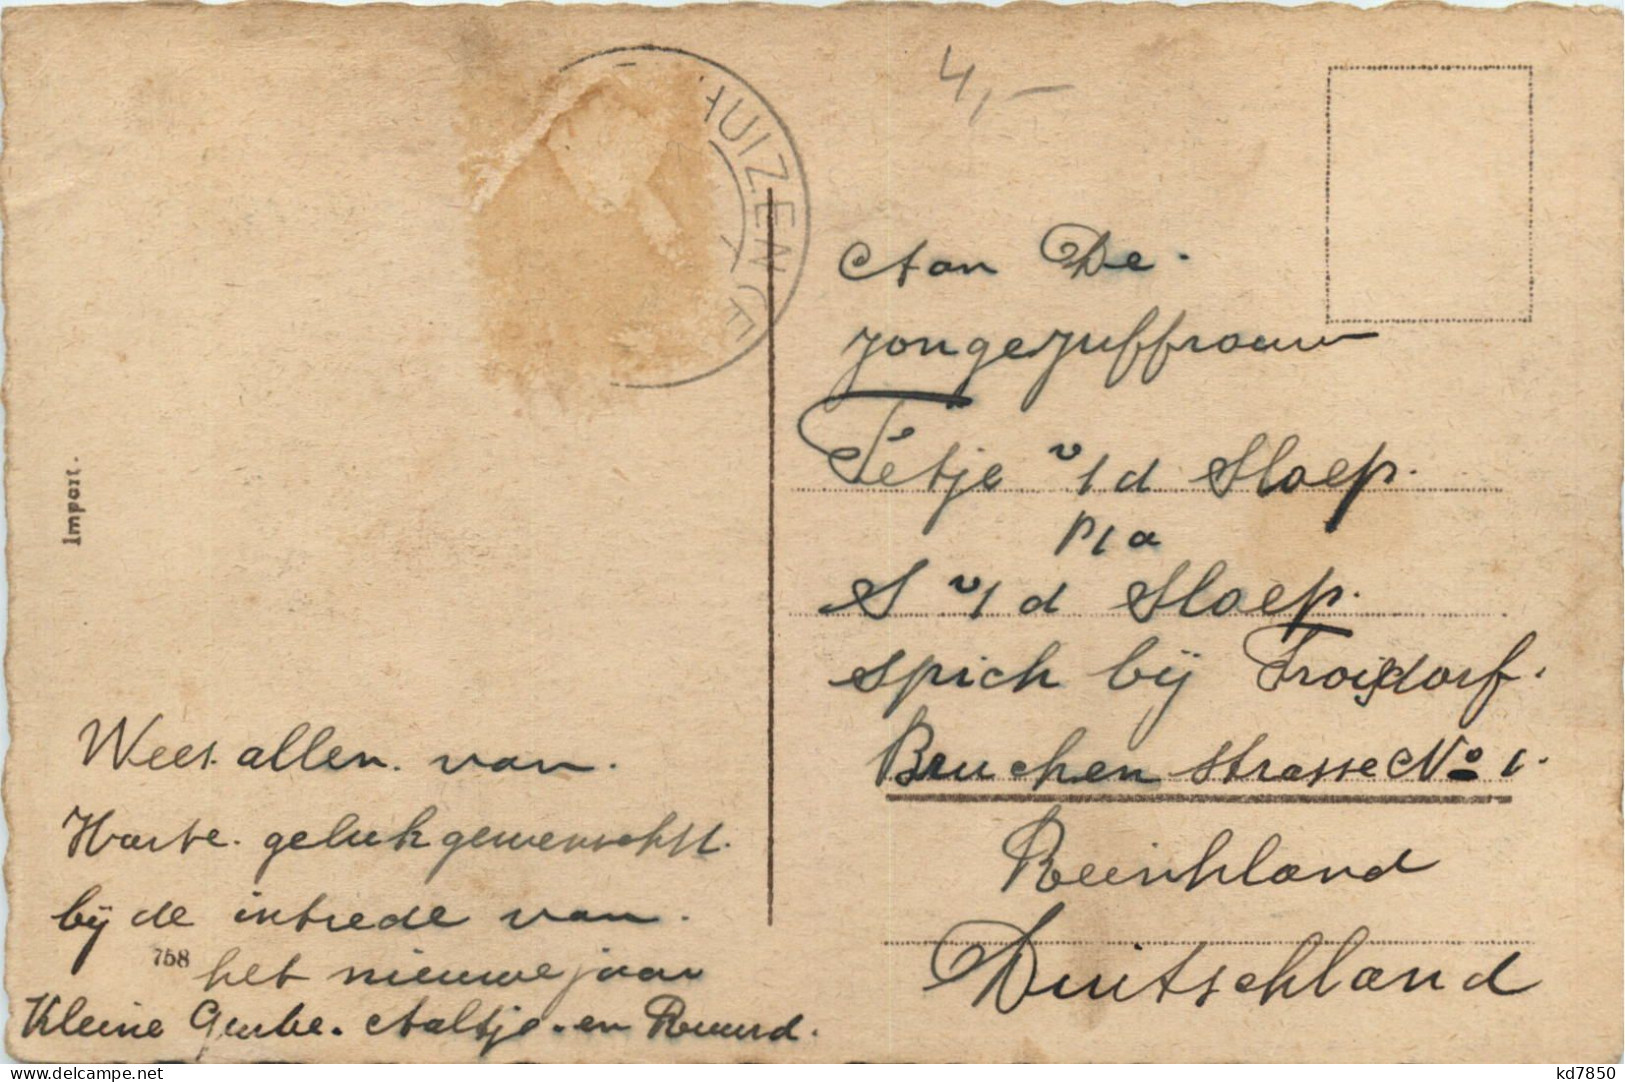 4,-
HUIZEN
Import.
Wees allen van
Harte geluk gewenschst.
bij de intrede van
758
het nieuwe jaar
Kleine Gurbe. Aaltje. en Ruurd.
Aan De
jonge juffrouw
Tétje v/d Sloep.
p/a
S v/d Sloep.
spich bij Troisdorf.
Bruchen strasse No 1.
Reinhland
Duitschland
delcampe.net
kd7850